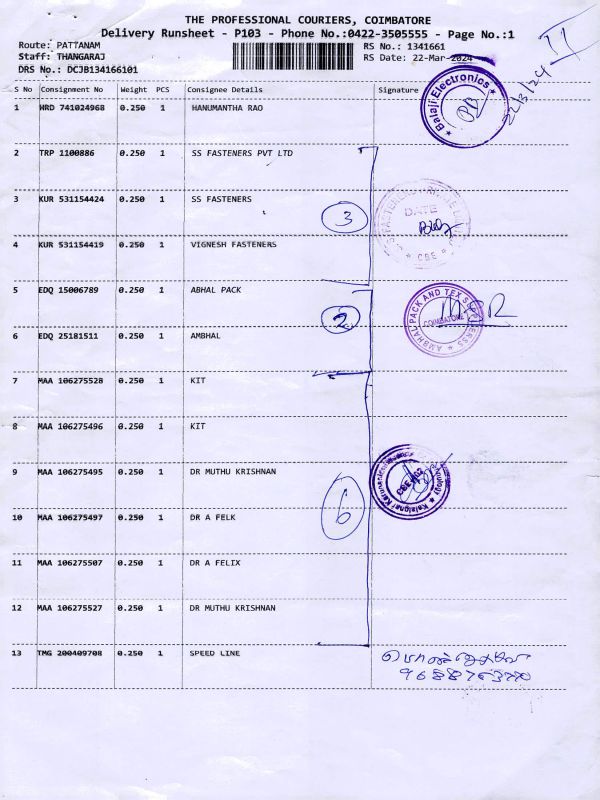 THE PROFESSIONAL COURIERS, COIMBATORE
Delivery Runsheet - P103 - Phone No.:0422-3505555 - Page No.:1
Route: PATTANAM RS No.: 1341661
Staff: THANGARAJ RS Date: 22-Mar-2024
DRS No.: DCJB134166101
S No Consignment No Weight PCS Consignee Details Signature
1 HRD 741024968 0.250 1 HANUMANTHA RAO
Balaji Electronics
22/3/24
2 TRP 1100886 0.250 1 SS FASTENERS PVT LTD
3 KUR 531154424 0.250 1 SS FASTENERS
3
DATE
CBE
4 KUR 531154419 0.250 1 VIGNESH FASTENERS
5 EDQ 15006789 0.250 1 ABHAL PACK
2
AMBHAL PACK AND TEX
COIMBATORE
6 EDQ 25181511 0.250 1 AMBHAL
7 MAA 106275528 0.250 1 KIT
8 MAA 106275496 0.250 1 KIT
9 MAA 106275495 0.250 1 DR MUTHU KRISHNAN
Kalaignar
6
10 MAA 106275497 0.250 1 DR A FELK
11 MAA 106275507 0.250 1 DR A FELIX
12 MAA 106275527 0.250 1 DR MUTHU KRISHNAN
13 TMG 200409708 0.250 1 SPEED LINE